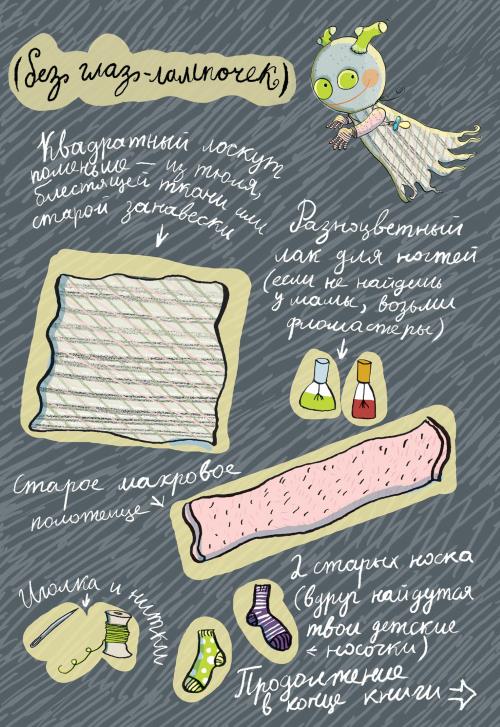 (без глаз-лампочек)
Квадратный лоскут
поменьше – из тюля,
блестящей ткани или
старой занавески
Разноцветный
лак для ногтей
(если не найдёшь
у мамы, возьми
фломастеры)
Старое махровое
полотенце
2 старых носка
(вдруг найдутся
твои детские
носочки)
Иголка и нитки
Продолжение
в конце книги